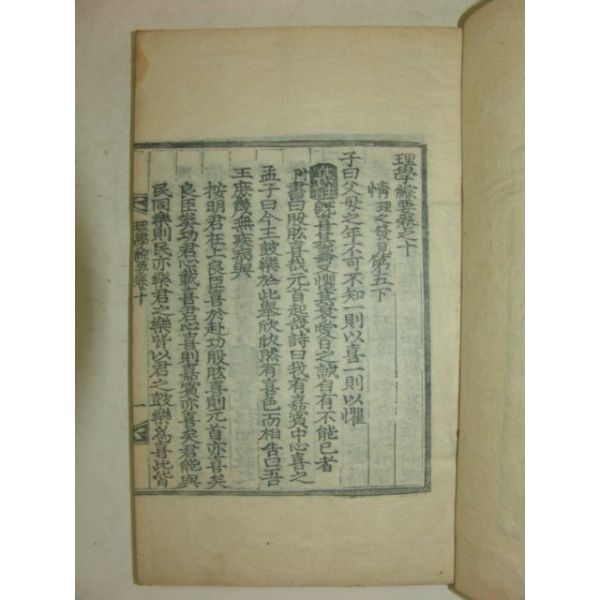 理學綜要卷之十
情理之發見第五下
子曰父母之年不可不知一則以喜一則以懼
旣喜其壽又懼其衰愛日之誠自有不能已者
附書曰股肱喜哉元首起哉詩曰我有嘉賓中心喜之
孟子曰今王鼓樂於此擧欣欣然有喜色而相告曰吾
王庶幾無疾病與
按明君在上良臣喜於赴功股肱喜則元首亦喜矣
良臣奏功君心載喜君心喜則嘉賓亦喜矣君能與
民同樂則民亦樂君之樂皆以君之鼓樂爲喜此皆
理學綜要卷十
一